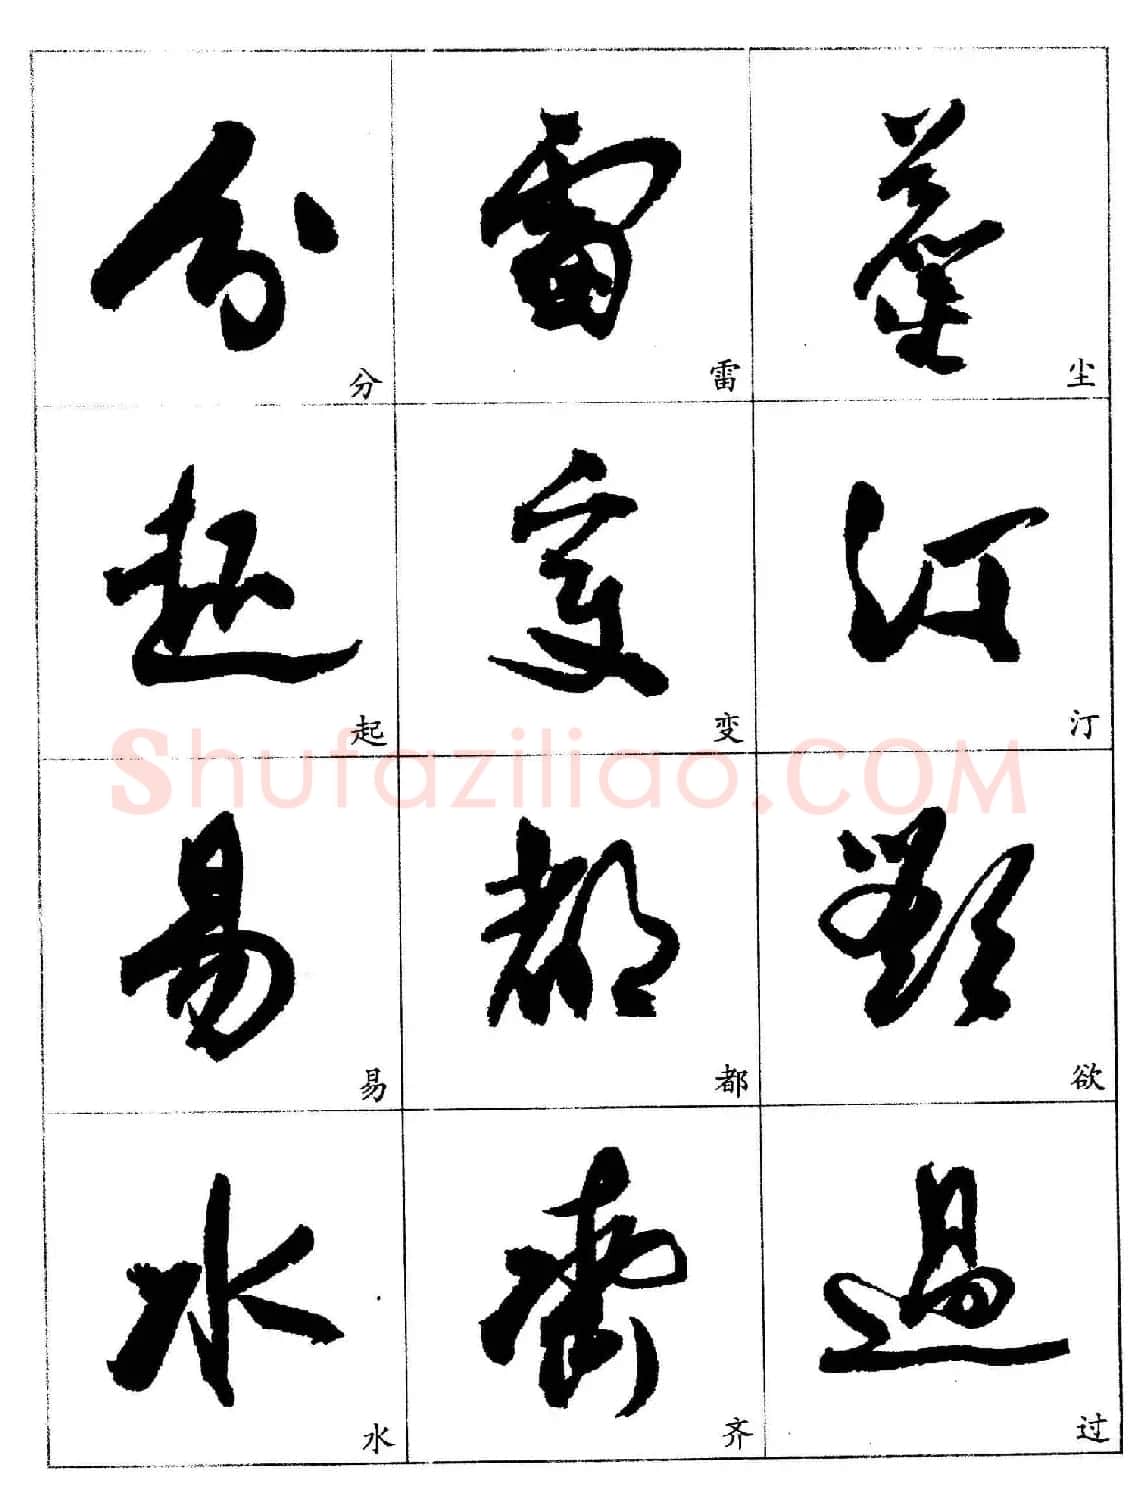 分 雷 尘
起 变 汀
Shufaziliao.COM
易 都 欲
水 齐 过